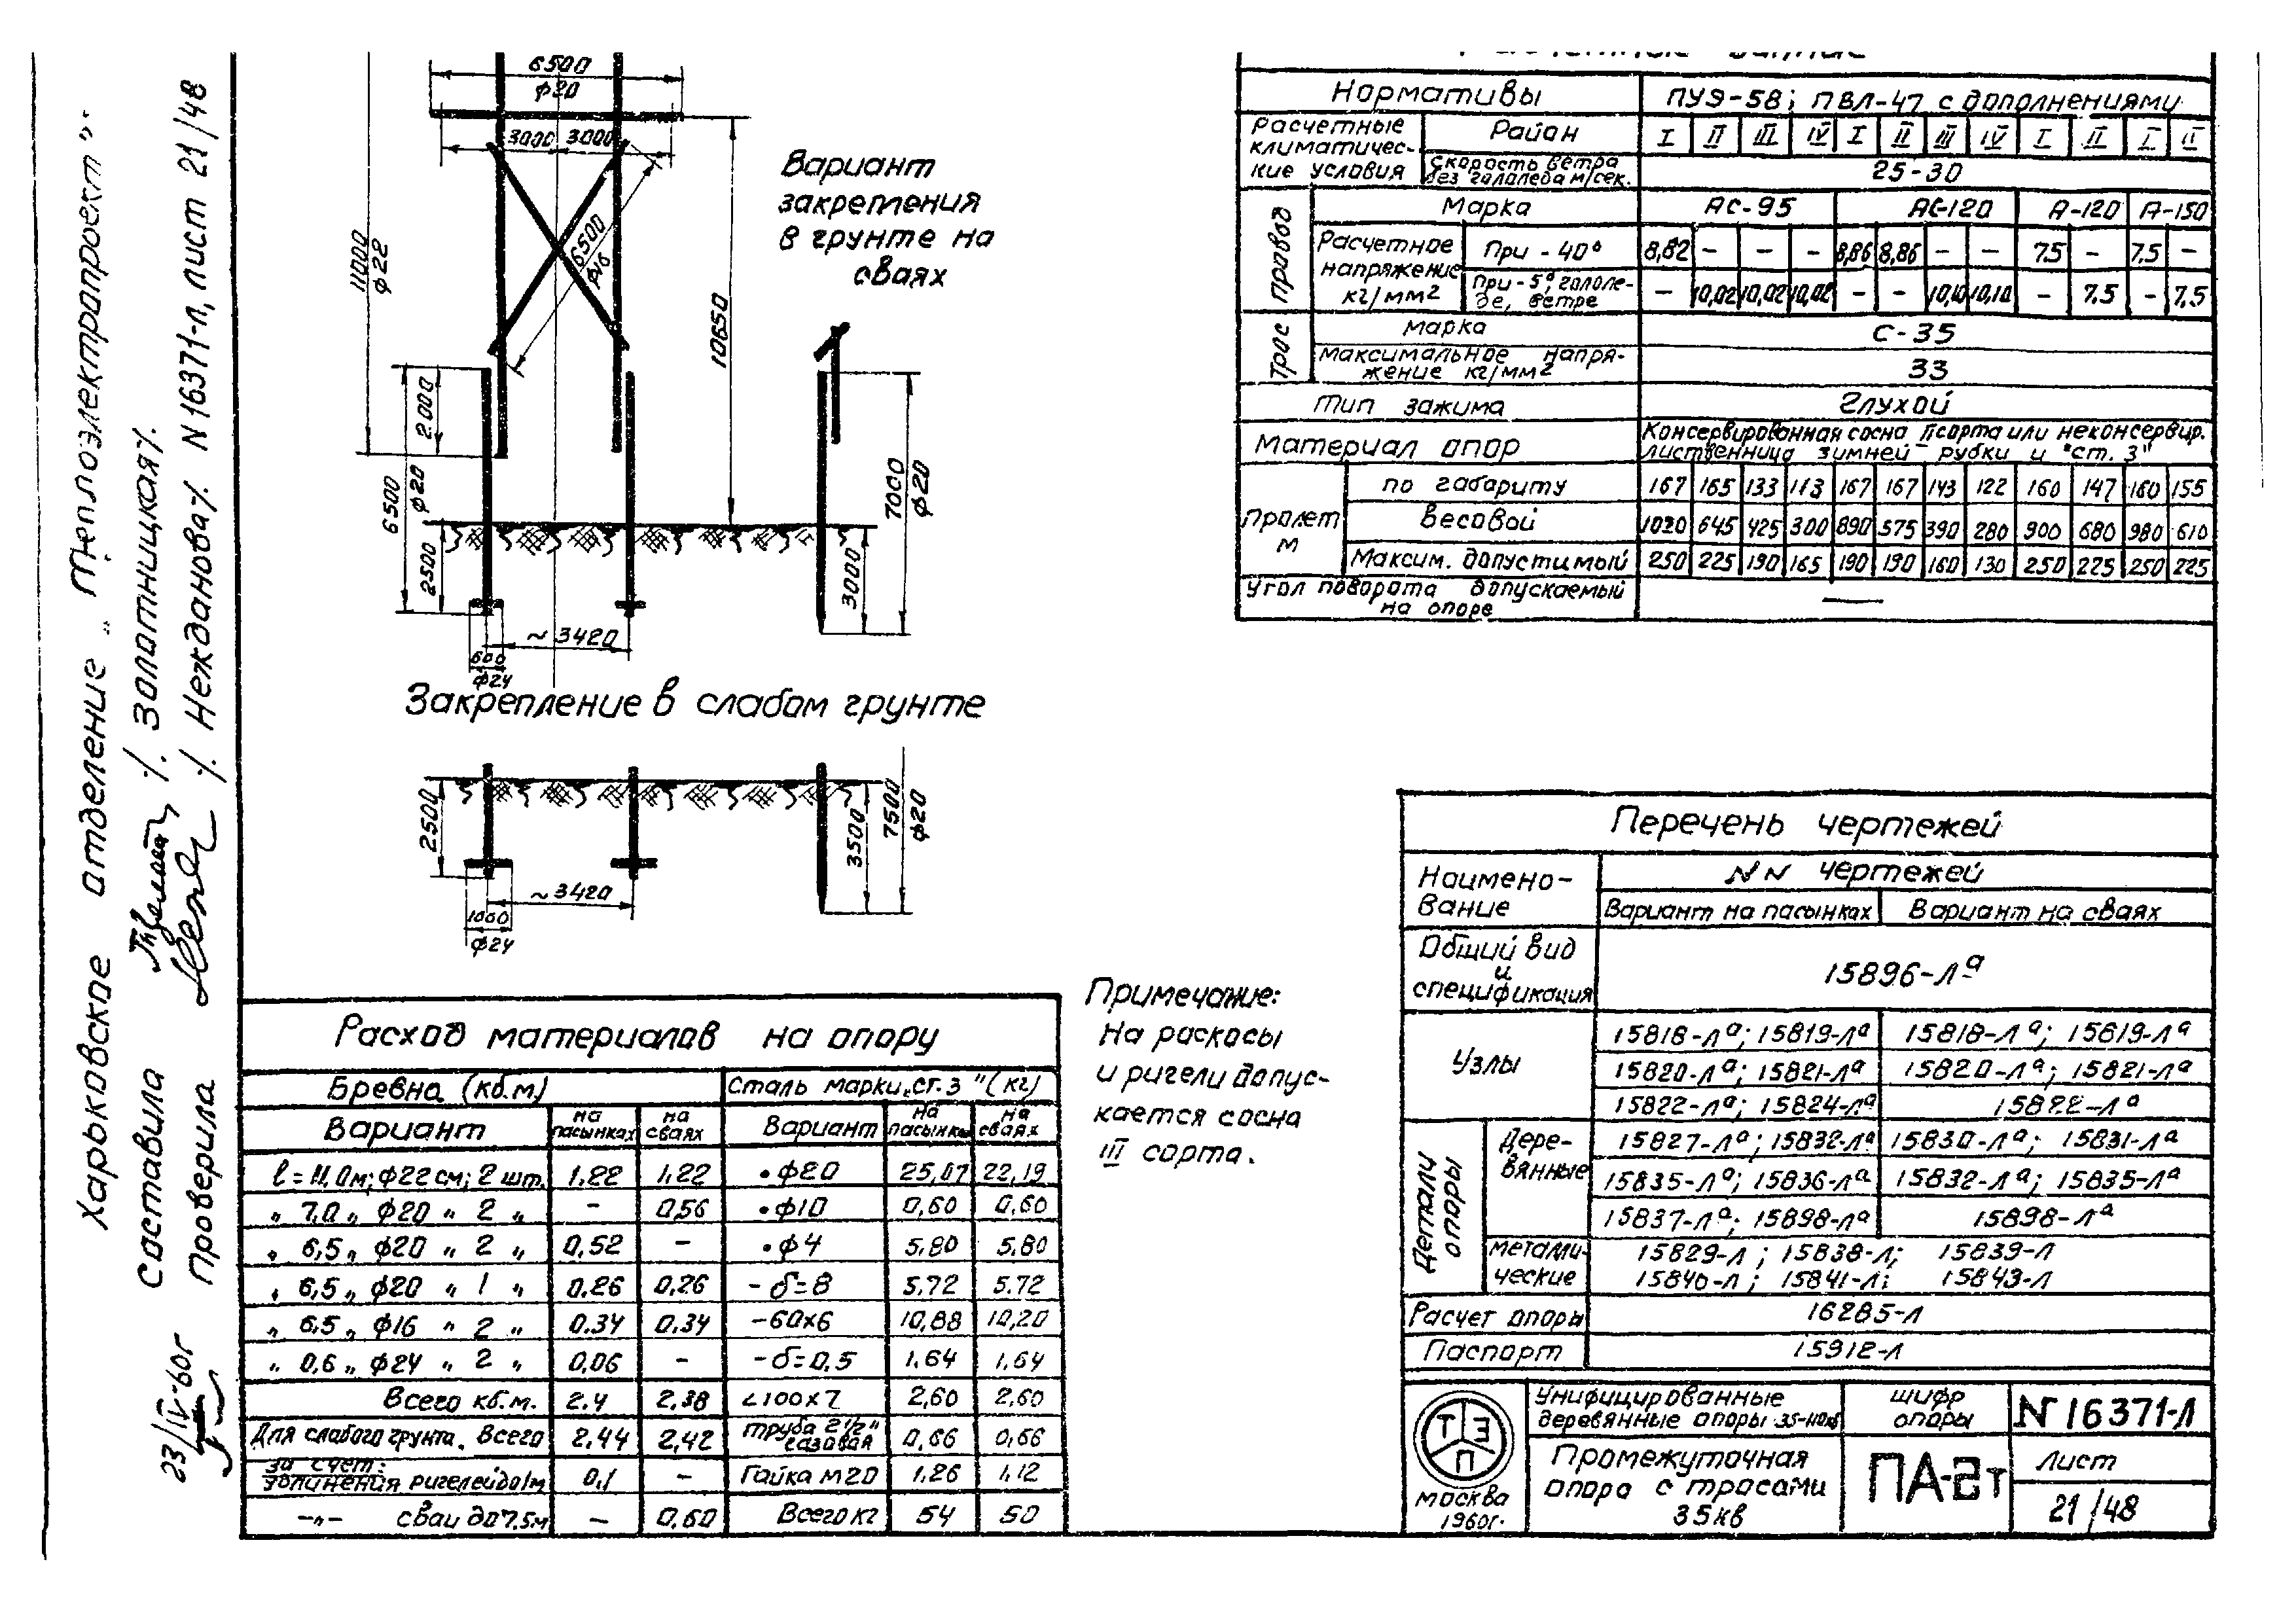 6500
ф20
3000 3000
6500
ф16
11000
ф22
10650
2000
6500
ф20
2500
7000
ф20
3000
~ 3420
600
ф24
Вариант
закрепления
в грунте на
сваях
Закрепление в слабом грунте
2500
3500
7500
ф20
~ 3420
1000
ф24
Расчетные данные
Нормативы ПУЭ-58; ПВЛ-47 с дополнениями
Расчетные климатичес-кие условия
Район I II III IV I II III IV I II I II
Скорость ветра без гололеда м/сек. 25-30
Провод
Марка АС-95 АС-120 А-120 А-150
Расчетное напряжение кг/мм2
При - 40° 8,82 – – – 8,86 8,86 – – 7.5 – 7.5 –
При -5°, гололе-де, ветре – 10,02 10,02 10,02 – – 10,10 10,10 – 7.5 – 7,5
Трос
Марка С-35
Максимальное напря-жение кг/мм2 33
Тип зажима Глухой
Материал опор Консервированная сосна II сорта или неконсервир. лиственница зимней рубки и "ст. 3"
Пролет м
по габариту 167 165 133 113 167 167 143 122 160 147 160 155
Весовой 1020 645 425 300 890 575 390 280 900 680 980 610
Максим. допустимый 250 225 190 165 190 190 160 130 250 225 250 225
Угол поворота допускаемый на опоре —
Расход материалов на опору
Бревна (кб.м) Сталь марки „ст. 3" (кг)
Вариант на пасынках на сваях Вариант на пасынках на сваях
ℓ = 11,0м; ф22 см; 2 шт. 1.22 1,22 • ф20 25,07 22,19
„ 7,0 „ ф20 „ 2 „ – 0,56 • ф10 0,60 0,60
„ 6,5 „ ф20 „ 2 „ 0,52 – • ф4 5,80 5,80
„ 6,5 „ ф20 „ 1 „ 0.26 0,26 - δ=8 5,72 5,72
„ 6,5 „ ф16 „ 2 „ 0.34 0.34 -60х6 10,88 10,20
„ 0,6 „ ф24 „ 2 „ 0,06 – - δ=0,5 1.64 1,64
Всего кб.м. 2.4 2,38 ∠100х7 2,60 2,60
Для слабого грунта. Всего 2,44 2,42 труба 2½" газовая 0,66 0,66
за счет: удлинения ригелей до 1м 0,1 – Гайка М20 1.26 1,12
–„– сваи до 7.5м – 0,60 Всего кг 54 50
Примечание:
На раскосы
и ригели допус-
кается сосна
III сорта.
Перечень чертежей
Наимено-вание
NN чертежей
Вариант на пасынках Вариант на сваях
Общий вид и спецификация 15896-Лª
Узлы
15818-Лª; 15819-Лª 15818-Лª; 15619-Лª
15820-Лª; 15821-Лª 15820-Лª; 15821-Лª
15822-Лª; 15824-Лª 15822-Лª
Детали опоры
Дере-вянные
15827-Лª; 15832-Лª 15830-Лª; 15831-Лª
15835-Лª; 15836-Лª 15832-Лª; 15835-Лª
15837-Лª; 15898-Лª 15898-Лª
металли-ческие
15829-Л; 15838-Л; 15839-Л
15840-Л; 15841-Л; 15843-Л
Расчет опоры 16285-Л
Паспорт 15912-Л
ТЭП
Москва
1960г.
Унифицированные
деревянные опоры 35-110кв
Промежуточная
опора с тросами
35кв
шифр
опоры
ПА-2т
N 16371-Л
Лист
21/48
Харьковское отделение „Теплоэлектропроект".
Составила /. Золотницкая/.
Проверила /. Нежданова/. N 16371-л, лист 21/48
23/IV-60г